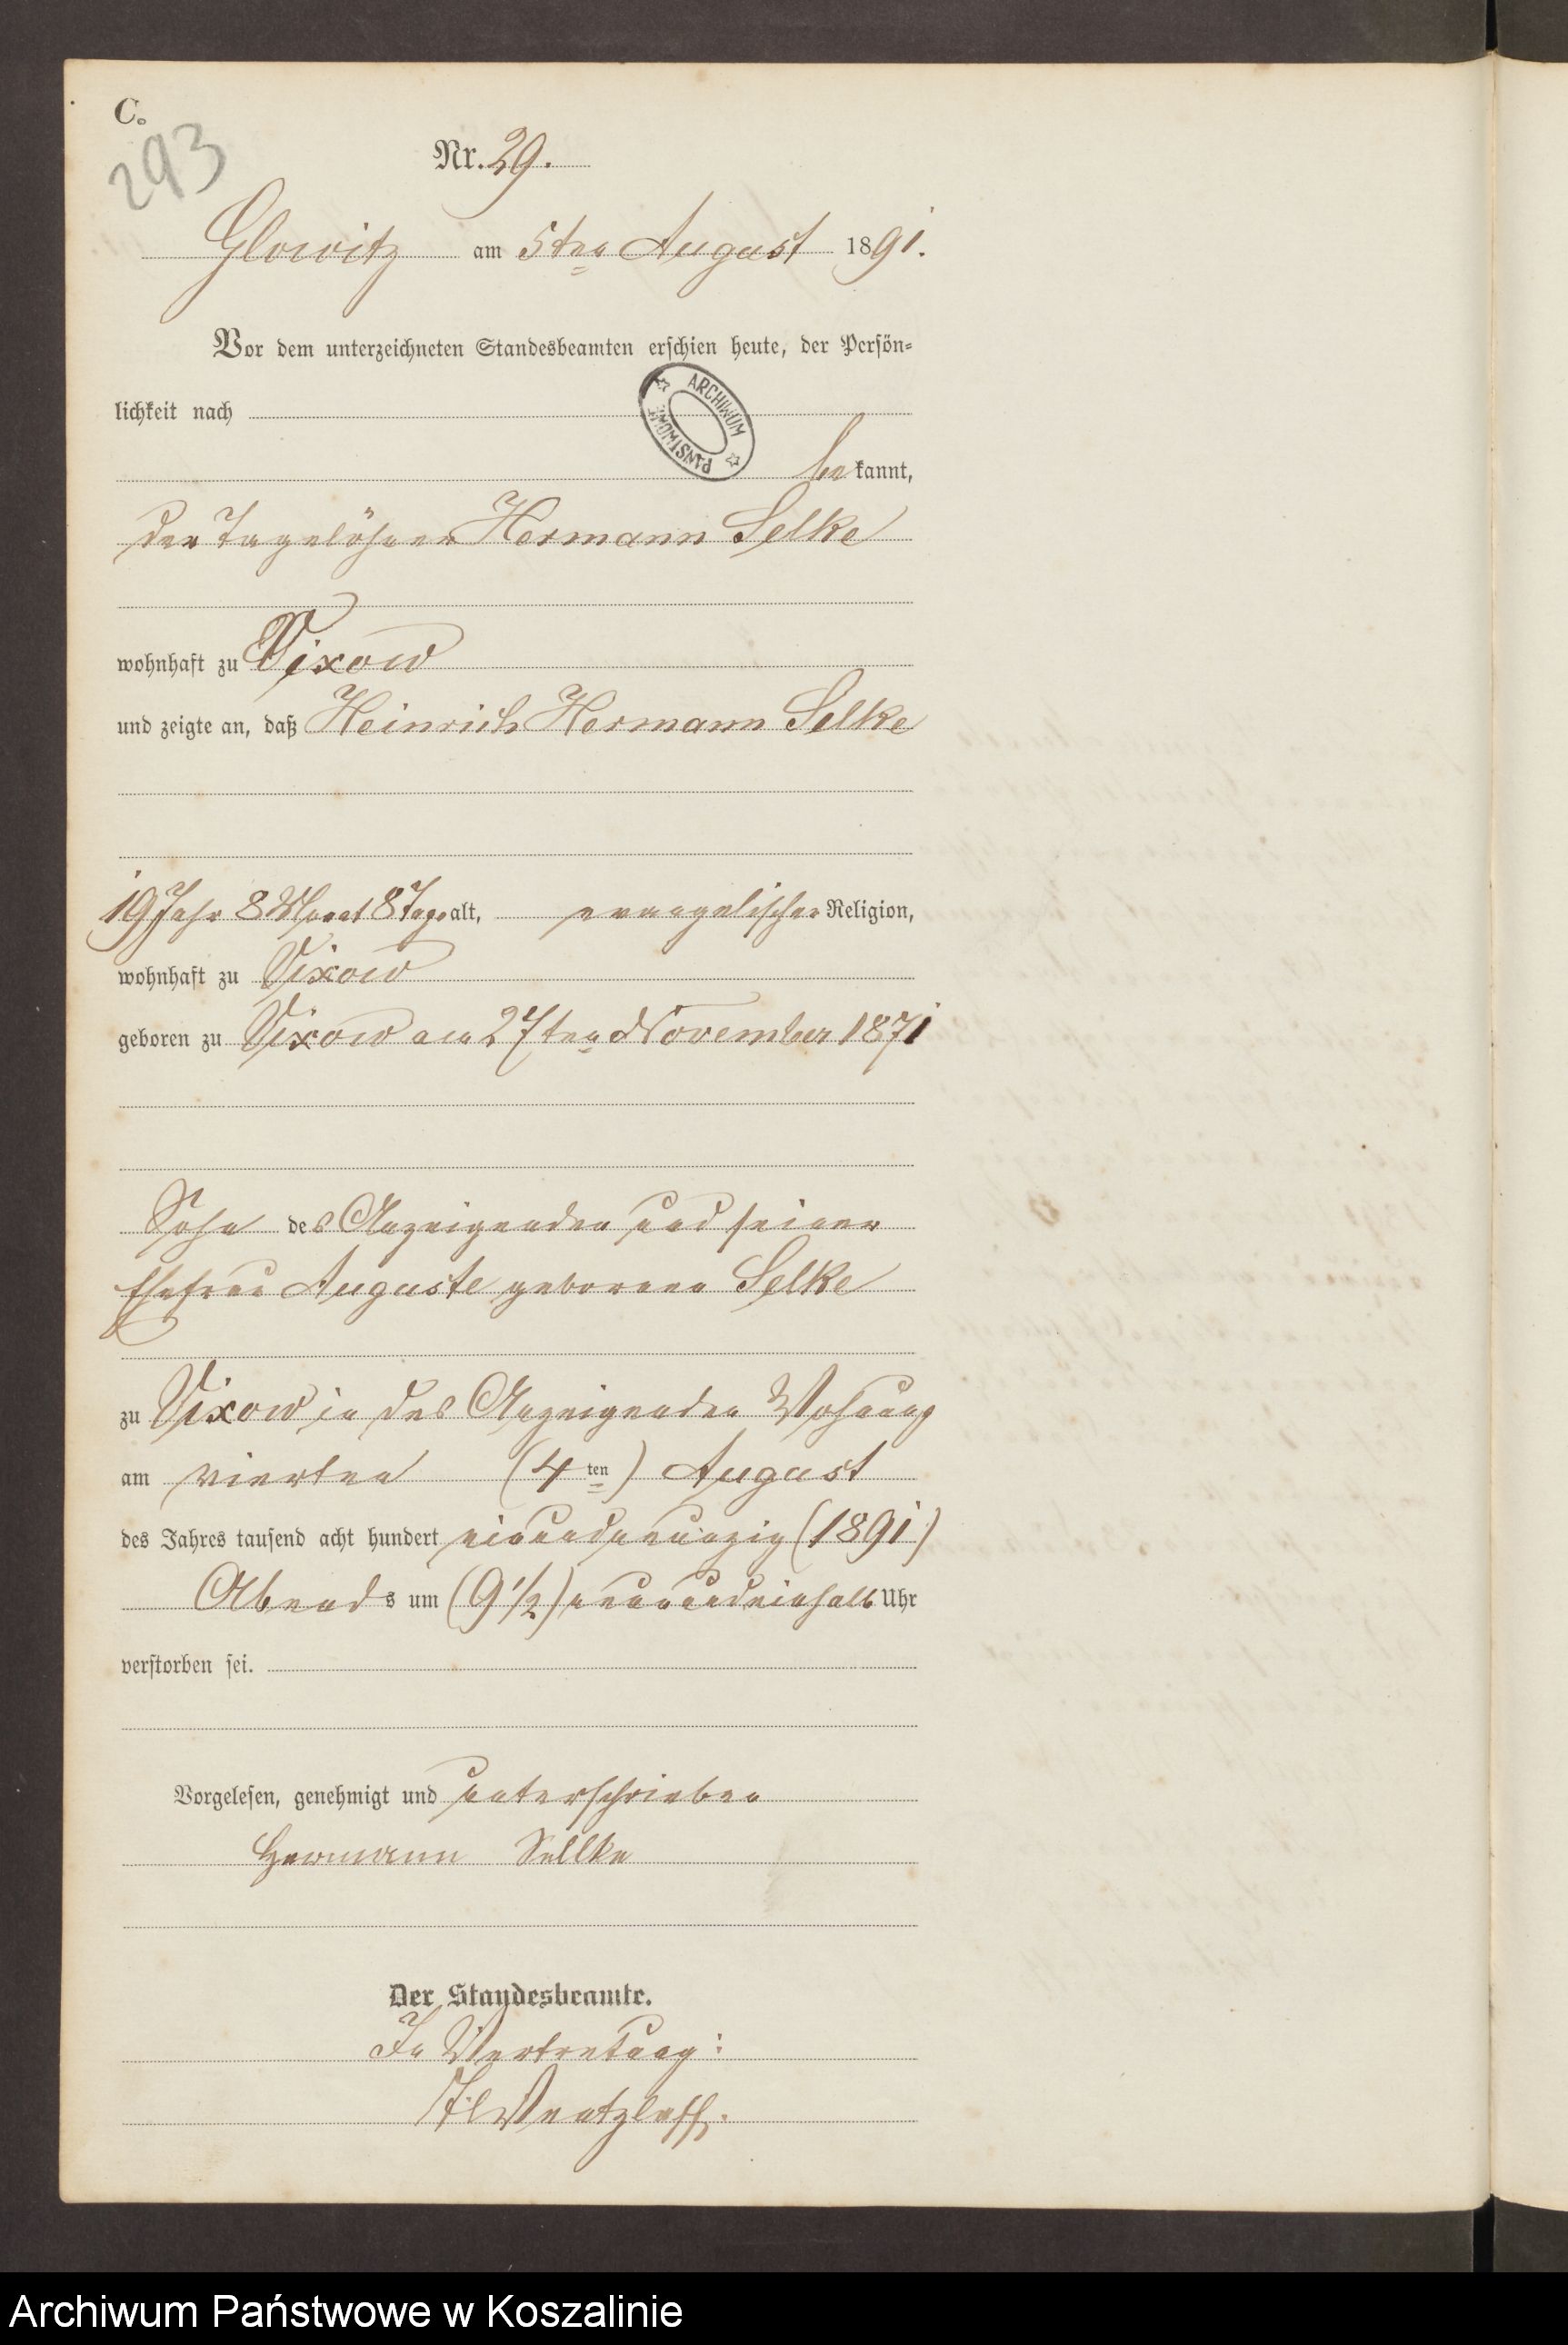 C.
293
Nr. 29.
Glowitz am 5ten August 1891.
Vor dem unterzeichneten Standesbeamten erschien heute, der Persön-
lichkeit nach
ARCHIWUM PAŃSTWOWE
bekannt,
der Tagelöhner Hermann Selke
wohnhaft zu Vixow
und zeigte an, daß Heinrich Hermann Selke
19 Jahr 8 Monat 8 Tage alt, evangelischer Religion,
wohnhaft zu Vixow
geboren zu Vixow am 27ten November 1871
Sohn des Anzeigenden und seiner
Ehefrau Auguste geborene Selke
zu Vixow in des Anzeigenden Wohnung
am vierten (4ten) August
des Jahres tausend acht hundert einundneunzig (1891)
Abends um (9 1/2) neunundeinhalb Uhr
verstorben sei.
Vorgelesen, genehmigt und unterschrieben
Hermann Sellke
Der Standesbeamte.
In Vertretung:
Wentzlaff.
Archiwum Państwowe w Koszalinie